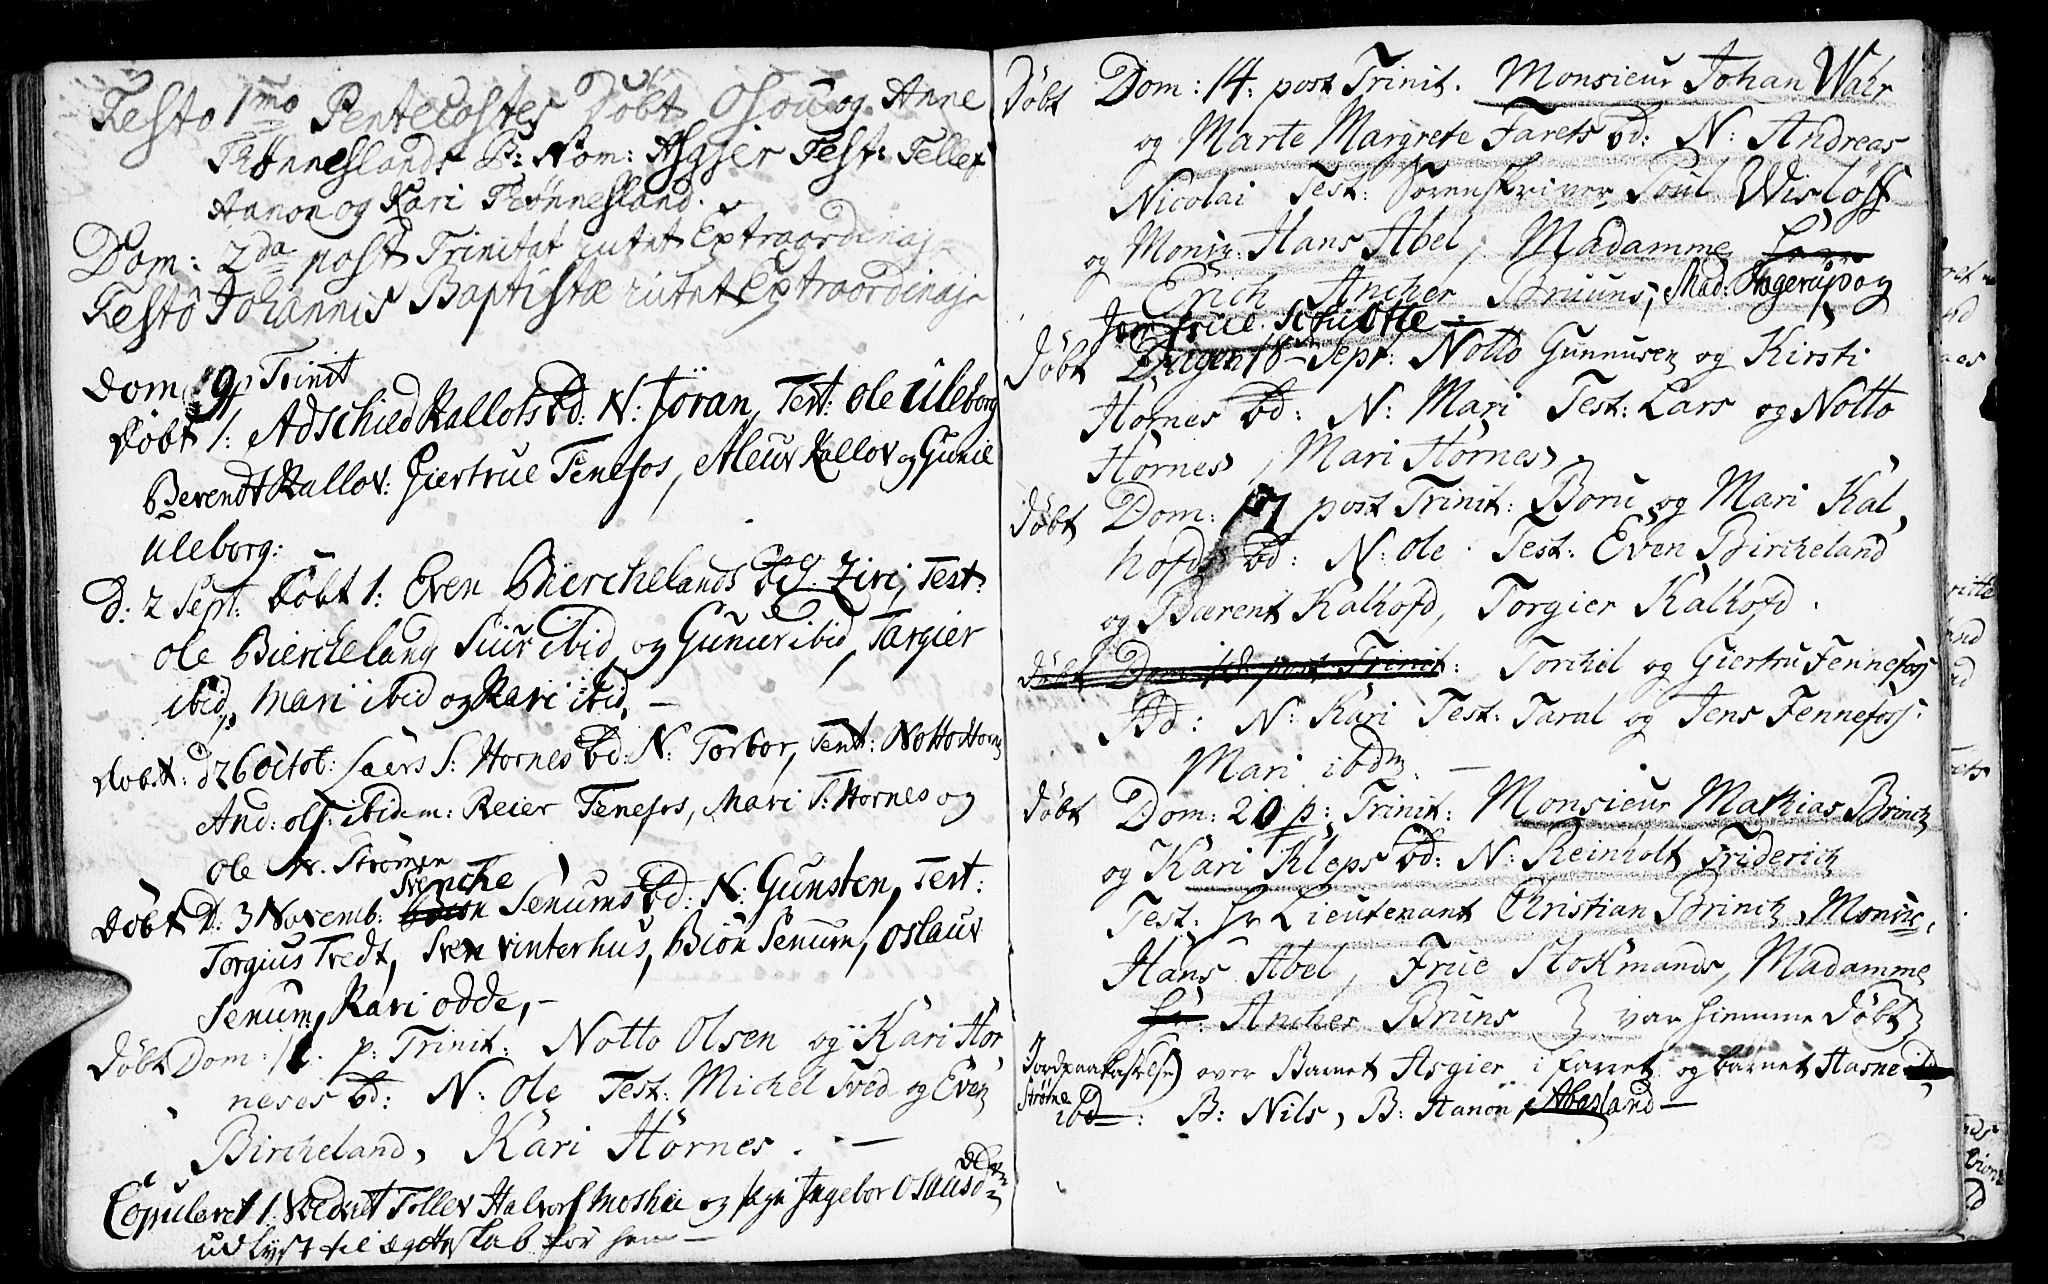 Festo 1mo Pentecostes Døbt Osou og Anne
Thønneslands B: Nom: Asgier Test: Tellef
Aanon og Kari Thønnesland.
Dom: 2da post Trinitat intet Extraordinair
Festo Johannis Baptistæ intet Extraordinair
Dom 9 p Trinit
Døbt 1: Adschied Kallofs bd: N: Jöran, Test: Ole Uleborg
Berendt Kallov: Giertrue Tenefos, Aleuv Kallov og Gunil
Uleborg:
D: 2 Sept: Døbt 1: Even Bierchelands bd: Ziri, Test:
Ole Biercheland Siur ibid, og Gunur ibid, Targier
ibid, Mari ibid og Kari ibid. —
Døbt: d 26 Octob: Laers S: Hornes bd: N: Torbor, Test: Notto Horn
And: Ols: ibidem: Reier Tenefos, Mari T: Hornes og
Ole Strømen
Svenche
Døbt D: 3 Novemb: Senums bd: N: Gunsten, Test:
Torgius Tvedt, Sven Vinterhus, Biön Senum, Oslauv
Senum, Kari Odde, —
Døbt Dom: p: Trinit: Notto Olsen og Kari Hör
neses bd: N: Ole Test: Michel Tved og Even
Bircheland, Kari Hörnes. —
Copuleret 1. Viedviet Tollev Halvors Moshei og Ingebor Osousd
udlyst til ægteskab for
Døbt Dom: 14: post Trinit. Monsieur Johan Wahr
og Marte Margrete Farets bd: N: Andreas
Nicolai Test: Sorenskriver Poul Wisløff
og Monsr: Hans Abel, Madamme
Erich Ancher Bruuns, Mad: Hagerup og
Jomfrue Schutte —
Døbt Dagen 18 Sept: Notto Gunnusen og Kirsti
Hornes bd: N: Mari Test: Lars og Notto
Hörnes, Mari Hörnes.
Døbt Dom: 17 post Trinit: Boru og Mari Kal,
hofd bd: N: Ole. Test: Even Bircheland
og Bærent Kalhofd, Torgier Kalhofd.
Døbt Dom 18 post Trinit: Torchil og Giertru Fennefoss
Bd: N: Kari Test: Taral og Jens Fennefoss:
Mari ibdm. —
Døbt Dom: 20 p: Trinit: Monsieur Mathias Brinch
og Kari Kleps bd: N: Reinholt Friderich
Test: Hr Lieutenant Christian Brinch, Monsr,
Hans Abel, Frue Stokmands, Madamme
Hr: Ancher Bruns } var hiemme Døbt }
Jordpaakastelse) over Barnet Asgier i farret og barnet Hasne
Strötne
ibd: B: Nils, B: Hanön, Abesland —